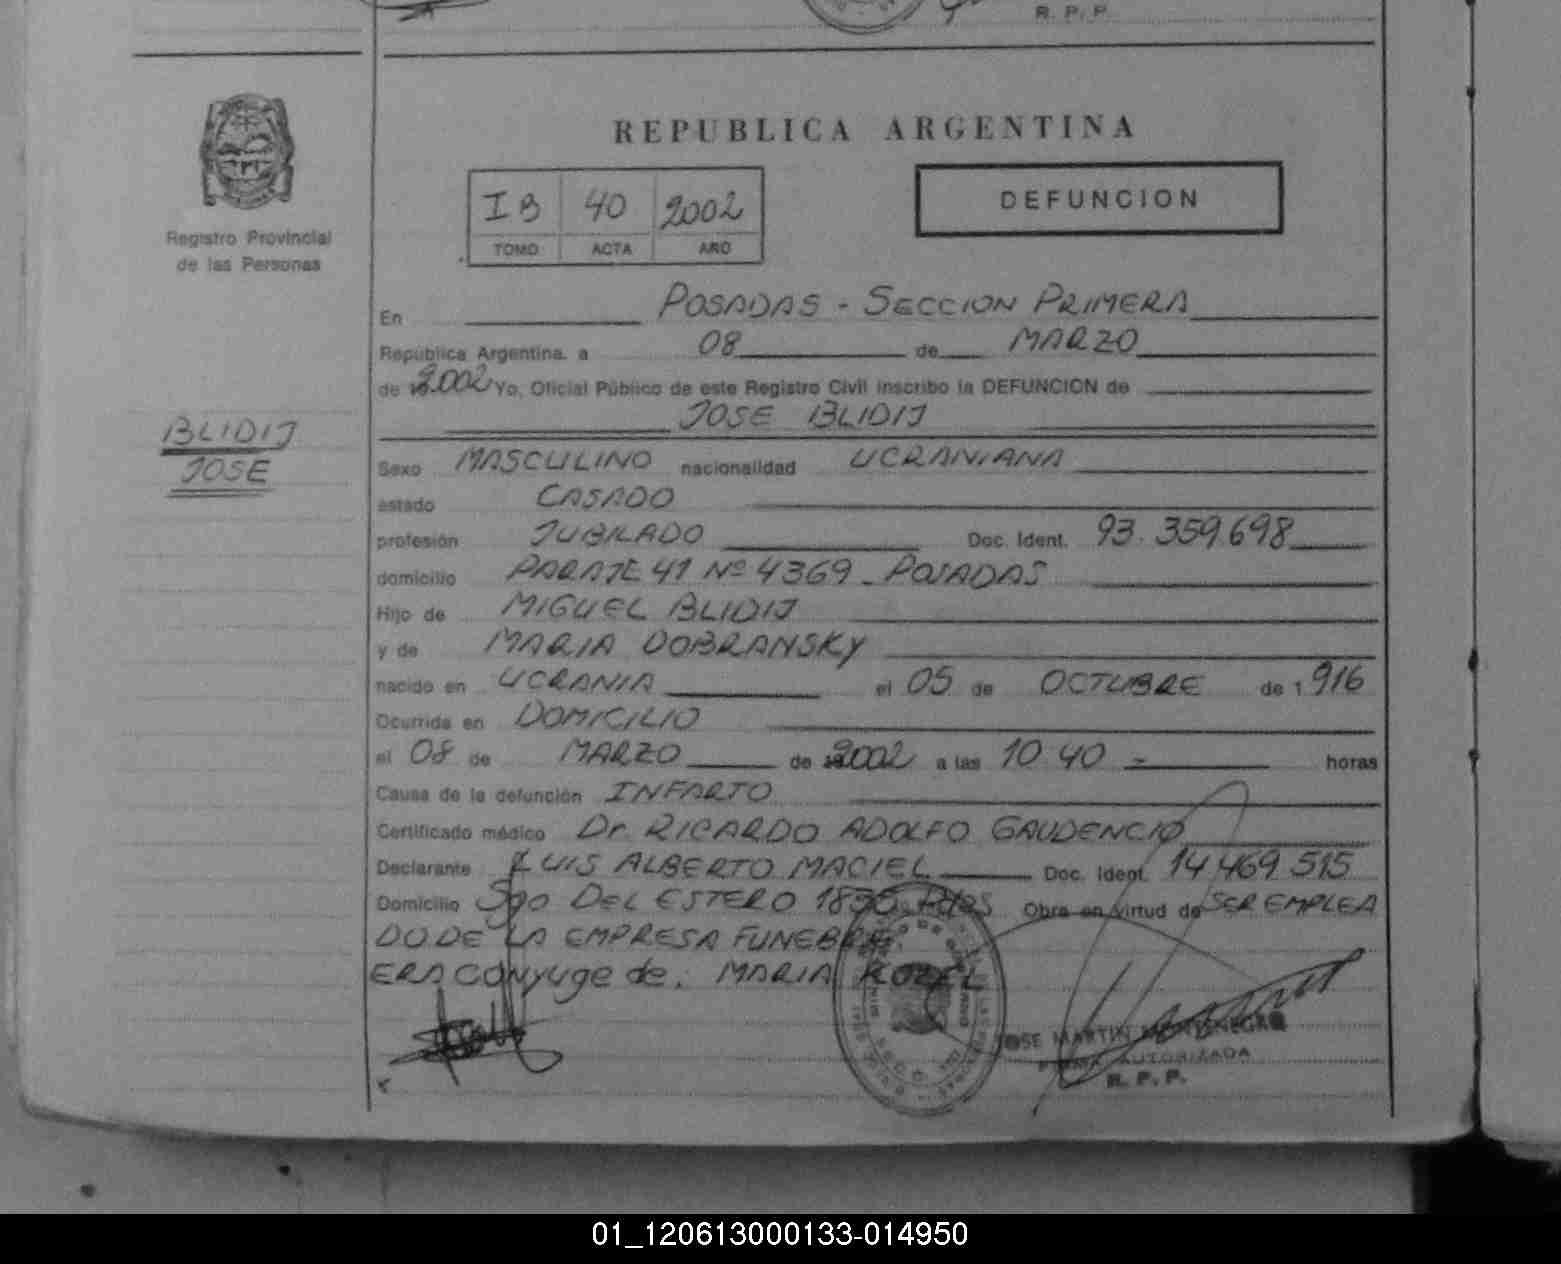 R. P. P.
REPUBLICA ARGENTINA
IB 40 2002
TOMO ACTA AÑO
DEFUNCION
Registro Provincial
de las Personas
En POSADAS - SECCION PRIMERA
República Argentina. a 08 de MARZO
de 2002 Yo, Oficial Público de este Registro Civil inscribo la DEFUNCION de
JOSE BLIDIJ
BLIDIJ
JOSE
Sexo MASCULINO nacionalidad UCRANIANA
estado CASADO
profesión JUBILADO Doc. Ident. 93.359.698
domicilio PARAJE 41 Nº 4369 - POSADAS
Hijo de MIGUEL BLIDIJ
y de MARIA DOBRANSKY
nacido en UCRANIA el 05 de OCTUBRE de 1 916
Ocurrida en DOMICILIO
el 08 de MARZO de 2002 a las 10.40 - horas
Causa de la defunción INFARTO
Certificado médico Dr. RICARDO ADOLFO GAUDENCIO
Declarante LUIS ALBERTO MACIEL Doc. Ident. 14.469.515
Domicilio Sgo DEL ESTERO Obra en virtud de SER EMPLEA
DO DE LA EMPRESA FUNEBRE.
ERA CONyuge de: MARIA
JOSE MARTIN MONTENEGRO
FIRMA AUTORIZADA
R. P. P.
01_120613000133-014950